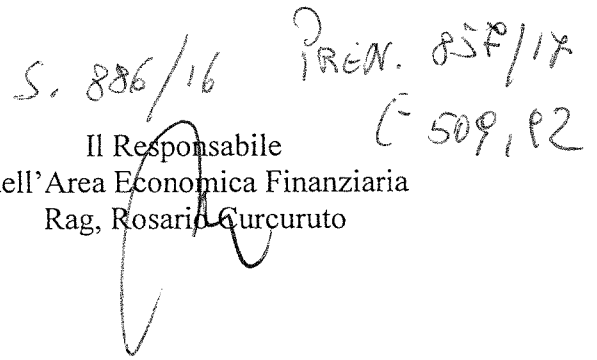 S. 886/16
PREN. 857/17
€ 509,92
Il Responsabile
ell'Area Economica Finanziaria
Rag, Rosario Curcuruto